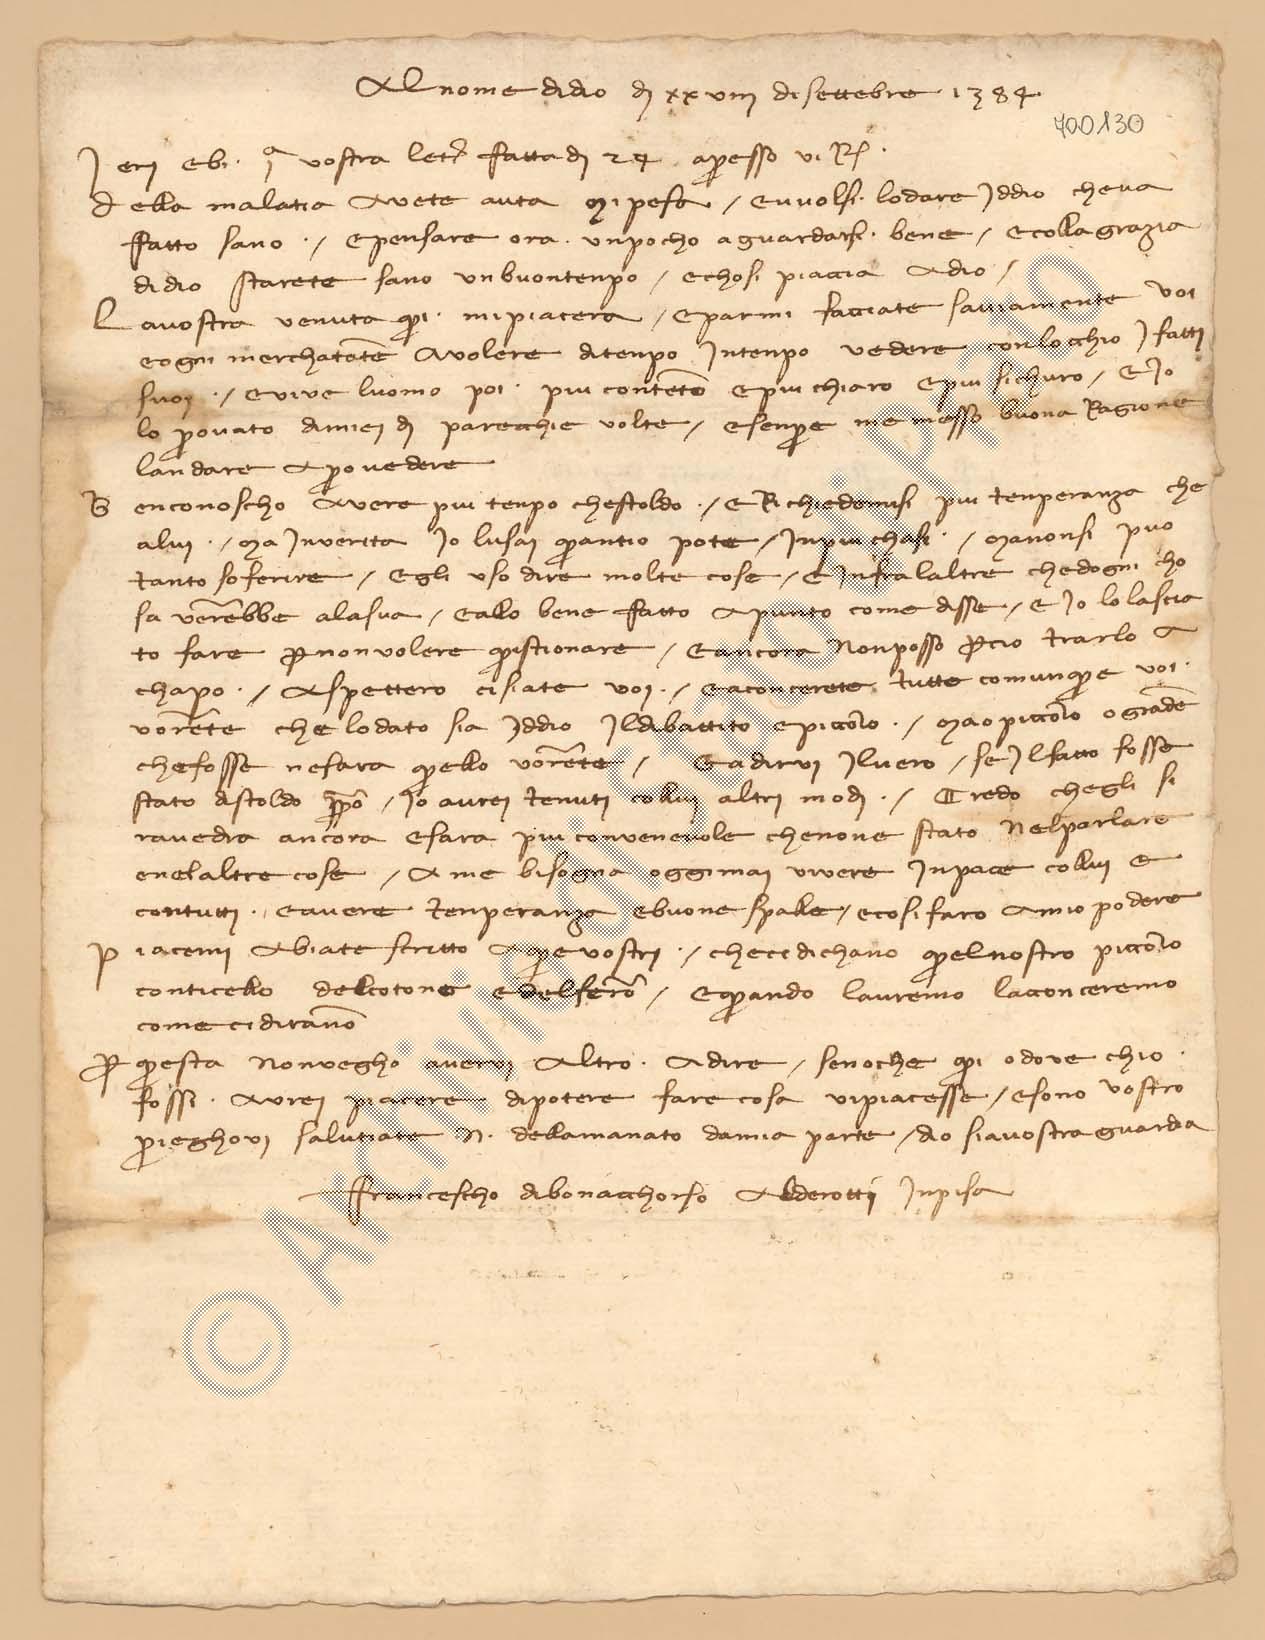 Al nome di dio di xxviiii di settebre 1384
700130
Jeri ebi 1a vostra letã fatta di 24 apresso vi R.
della malatia avete auta mi pesa / e vuolsi lodare Jddio che va
fatto sano / e pensare ora un pocho a guardarsi bene / e colla grazia
di dio starete sano un buon tenpo / e chosi piaccia a dio /
La vostra venuta qui mi piacera / e parmi facciate saviamente voi
e ogni merchatãte a volere di tenpo in tenpo vedere con locchio J fatti
suoi / e vive luomo poi piu contẽto e piu chiaro e piu sichuro / e Jo
lo provato a miei di parecchie volte / e senpre me messo buona Ragione
landare a provedere
Ben conoscho avere piu tenpo che stoldo / e Richiedemisi piu tenperanza che
a lui / ma in verita Jo lusai quanto pote / in piu chasi / ma non si puo
tanto soferire / e gli uso dire molte cose / e infra laltre che dogni cho
sa verẽbbe a la sua / e allo bene fatto a punto come disse / e Jo lo lascia
to fare per non volere quistionare / e ancora Non posso percio trarlo a
chapo / aspettero ci siate voi / e aconcerete tutte comunque voi
vorẽte che lodato sia Jddio il dibattito e piccolo / ma o piccolo o grãde
che fosse ne fara quello vorẽte / e a dirvi il vero / se il fatto fosse
stato di stoldo proprio / Jo aurei tenuti collui altri modi / Credo chegli si
ravedra ancora e sara piu convenevole che none stato Nel parlare
e nel altre cose / a me bisogna oggimai vivere in pace collui e
con tutti e avere tenperanza e buone spalle / e cosi faro a mio podere
Piacemi abiate scritto a que vostri / che ci dichano quel nostro piccolo
conticello del cotone e del ferro / e quando lauremo lacconceremo
come ci diranno
Per questa Non vegho avervi altro a dire / se no che qui o dove chio
fossi avrei piacere di potere fare cosa vi piacesse / e sono vostro
prieghovi salutiate N. dellamanato da mia parte / dio sia vostra guardia
Francescho di bonacchorso Alderotti in pisa
© Archivio di Stato di Prato